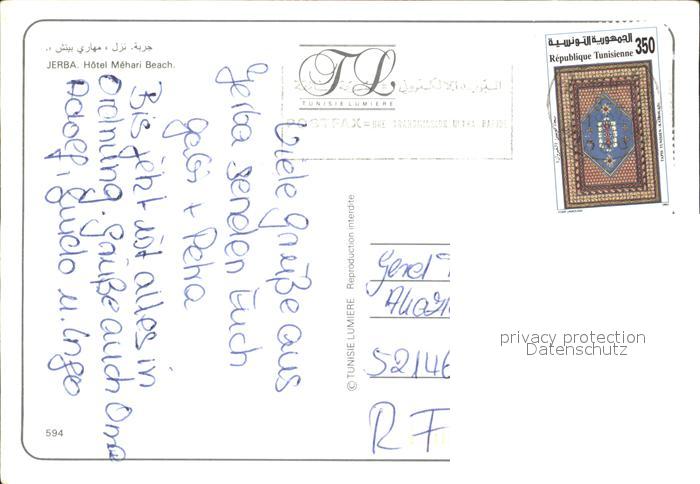 جربة. نزل ، مهاري بيتش ،.
JERBA. Hôtel Méhari Beach.
TL
TUNISIE LUMIERE
POSTFAX = UNE TRANSMISSION ULTRA RAPIDE
الجمهورية التونسية 350
République Tunisienne
Viele Grüße aus
Jerba senden Euch
Gabi + Petra
Bis jetzt ist alles in
Ordnung. Grüße auch Oma
Guido u. Inge
© TUNISIE LUMIERE Reproduction interdite
52146
R F
privacy protection
Datenschutz
594